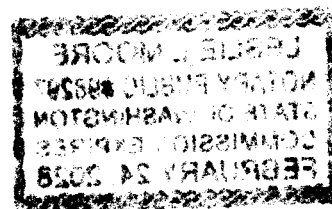 LESLIE L MOORE
NOTARY PUBLIC #98297
STATE OF WASHINGTON
COMMISSION EXPIRES
FEBRUARY 24, 2028